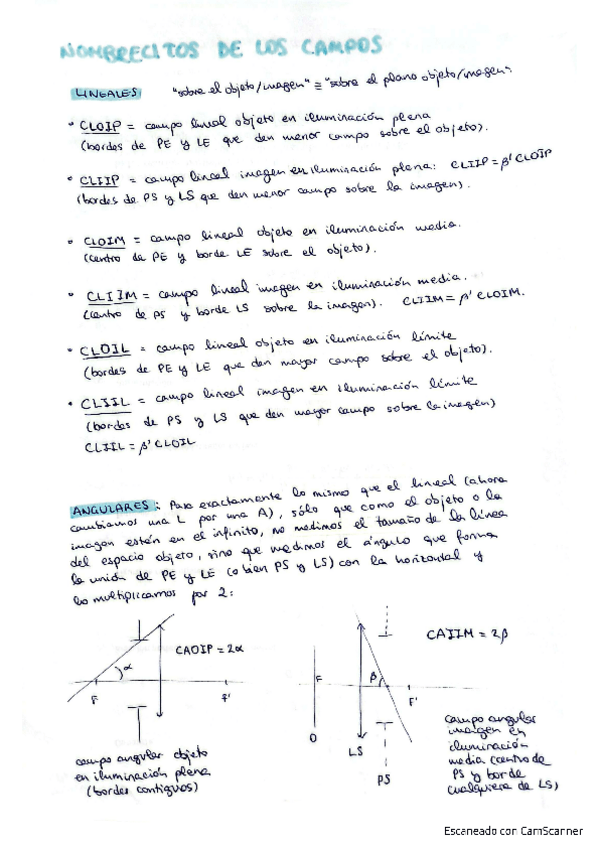 NOMBRECITOS DE LOS CAMPOS
LINEALES "sobre el objeto/imagen" ≡ "sobre el plano objeto/imagen".
• CLOIP = campo lineal objeto en iluminación plena
(bordes de PE y LE que den menor campo sobre el objeto).
• CLIIP = campo lineal imagen en iluminación plena: CLIIP = β' CLOIP
(bordes de PS y LS que den menor campo sobre la imagen).
• CLOIM = campo lineal objeto en iluminación media.
(centro de PE y borde LE sobre el objeto).
• CLIIM = campo lineal imagen en iluminación media.
(centro de PS y borde LS sobre la imagen). CLIIM = β' CLOIM.
• CLOIL = campo lineal objeto en iluminación límite
(bordes de PE y LE que den mayor campo sobre el objeto).
• CLIIL = campo lineal imagen en iluminación límite
(bordes de PS y LS que den mayor campo sobre la imagen)
CLIIL = β' CLOIL
ANGULARES: Pasa exactamente lo mismo que el lineal (ahora
cambiamos una L por una A), sólo que como el objeto o la
imagen están en el infinito, no medimos el tamaño de la línea
del espacio objeto, sino que medimos el ángulo que forma
la unión de PE y LE (o bien PS y LS) con la horizontal y
lo multiplicamos por 2:
CAOIP = 2α
α
F
F'
campo angular objeto
en iluminación plena
(bordes contiguos)
CAIIM = 2β
F
β
F'
O
LS
PS
campo angular
imagen en
iluminación
media (centro de
PS y borde
cualquiera de LS)
Escaneado con CamScanner